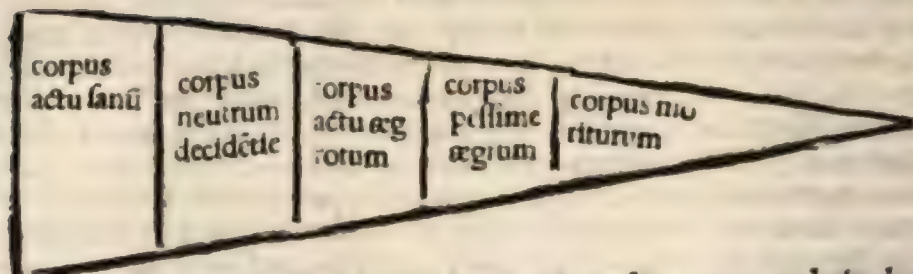 corpus
actu sanū
corpus
neutrum
decidētie
corpus
actu æg
rotum
corpus
pessime
ægrum
corpus mo
riturum